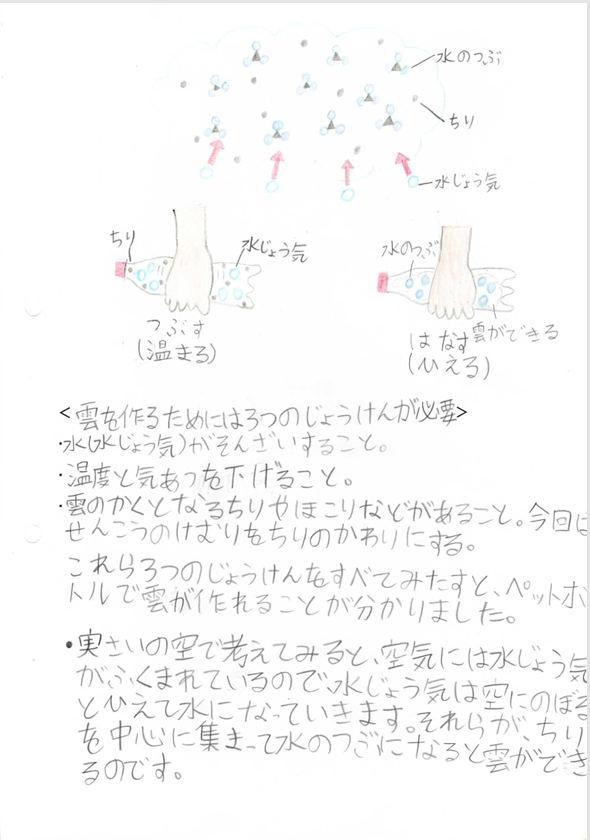 水のつぶ
ちり
水じょう気
ちり
水じょう気
つぶす
(温まる)
水のつぶ
はなす
(ひえる)
雲ができる
<雲を作るためには3つのじょうけんが必要>
・水(水じょう気)がそんざいすること。
・温度と気あつを下げること。
・雲のかくとなるちりやほこりなどがあること。今回は
せんこうのけむりをちりのかわりにする。
これら3つのじょうけんをすべてみたすと、ペットボ
トルで雲が作れることが分かりました。
・実さいの空で考えてみると、空気には水じょう気
がふくまれているので、水じょう気は空にのぼる
とひえて水になっていきます。それらが、ちり
を中心に集まって水のつぶになると雲ができ
るのです。